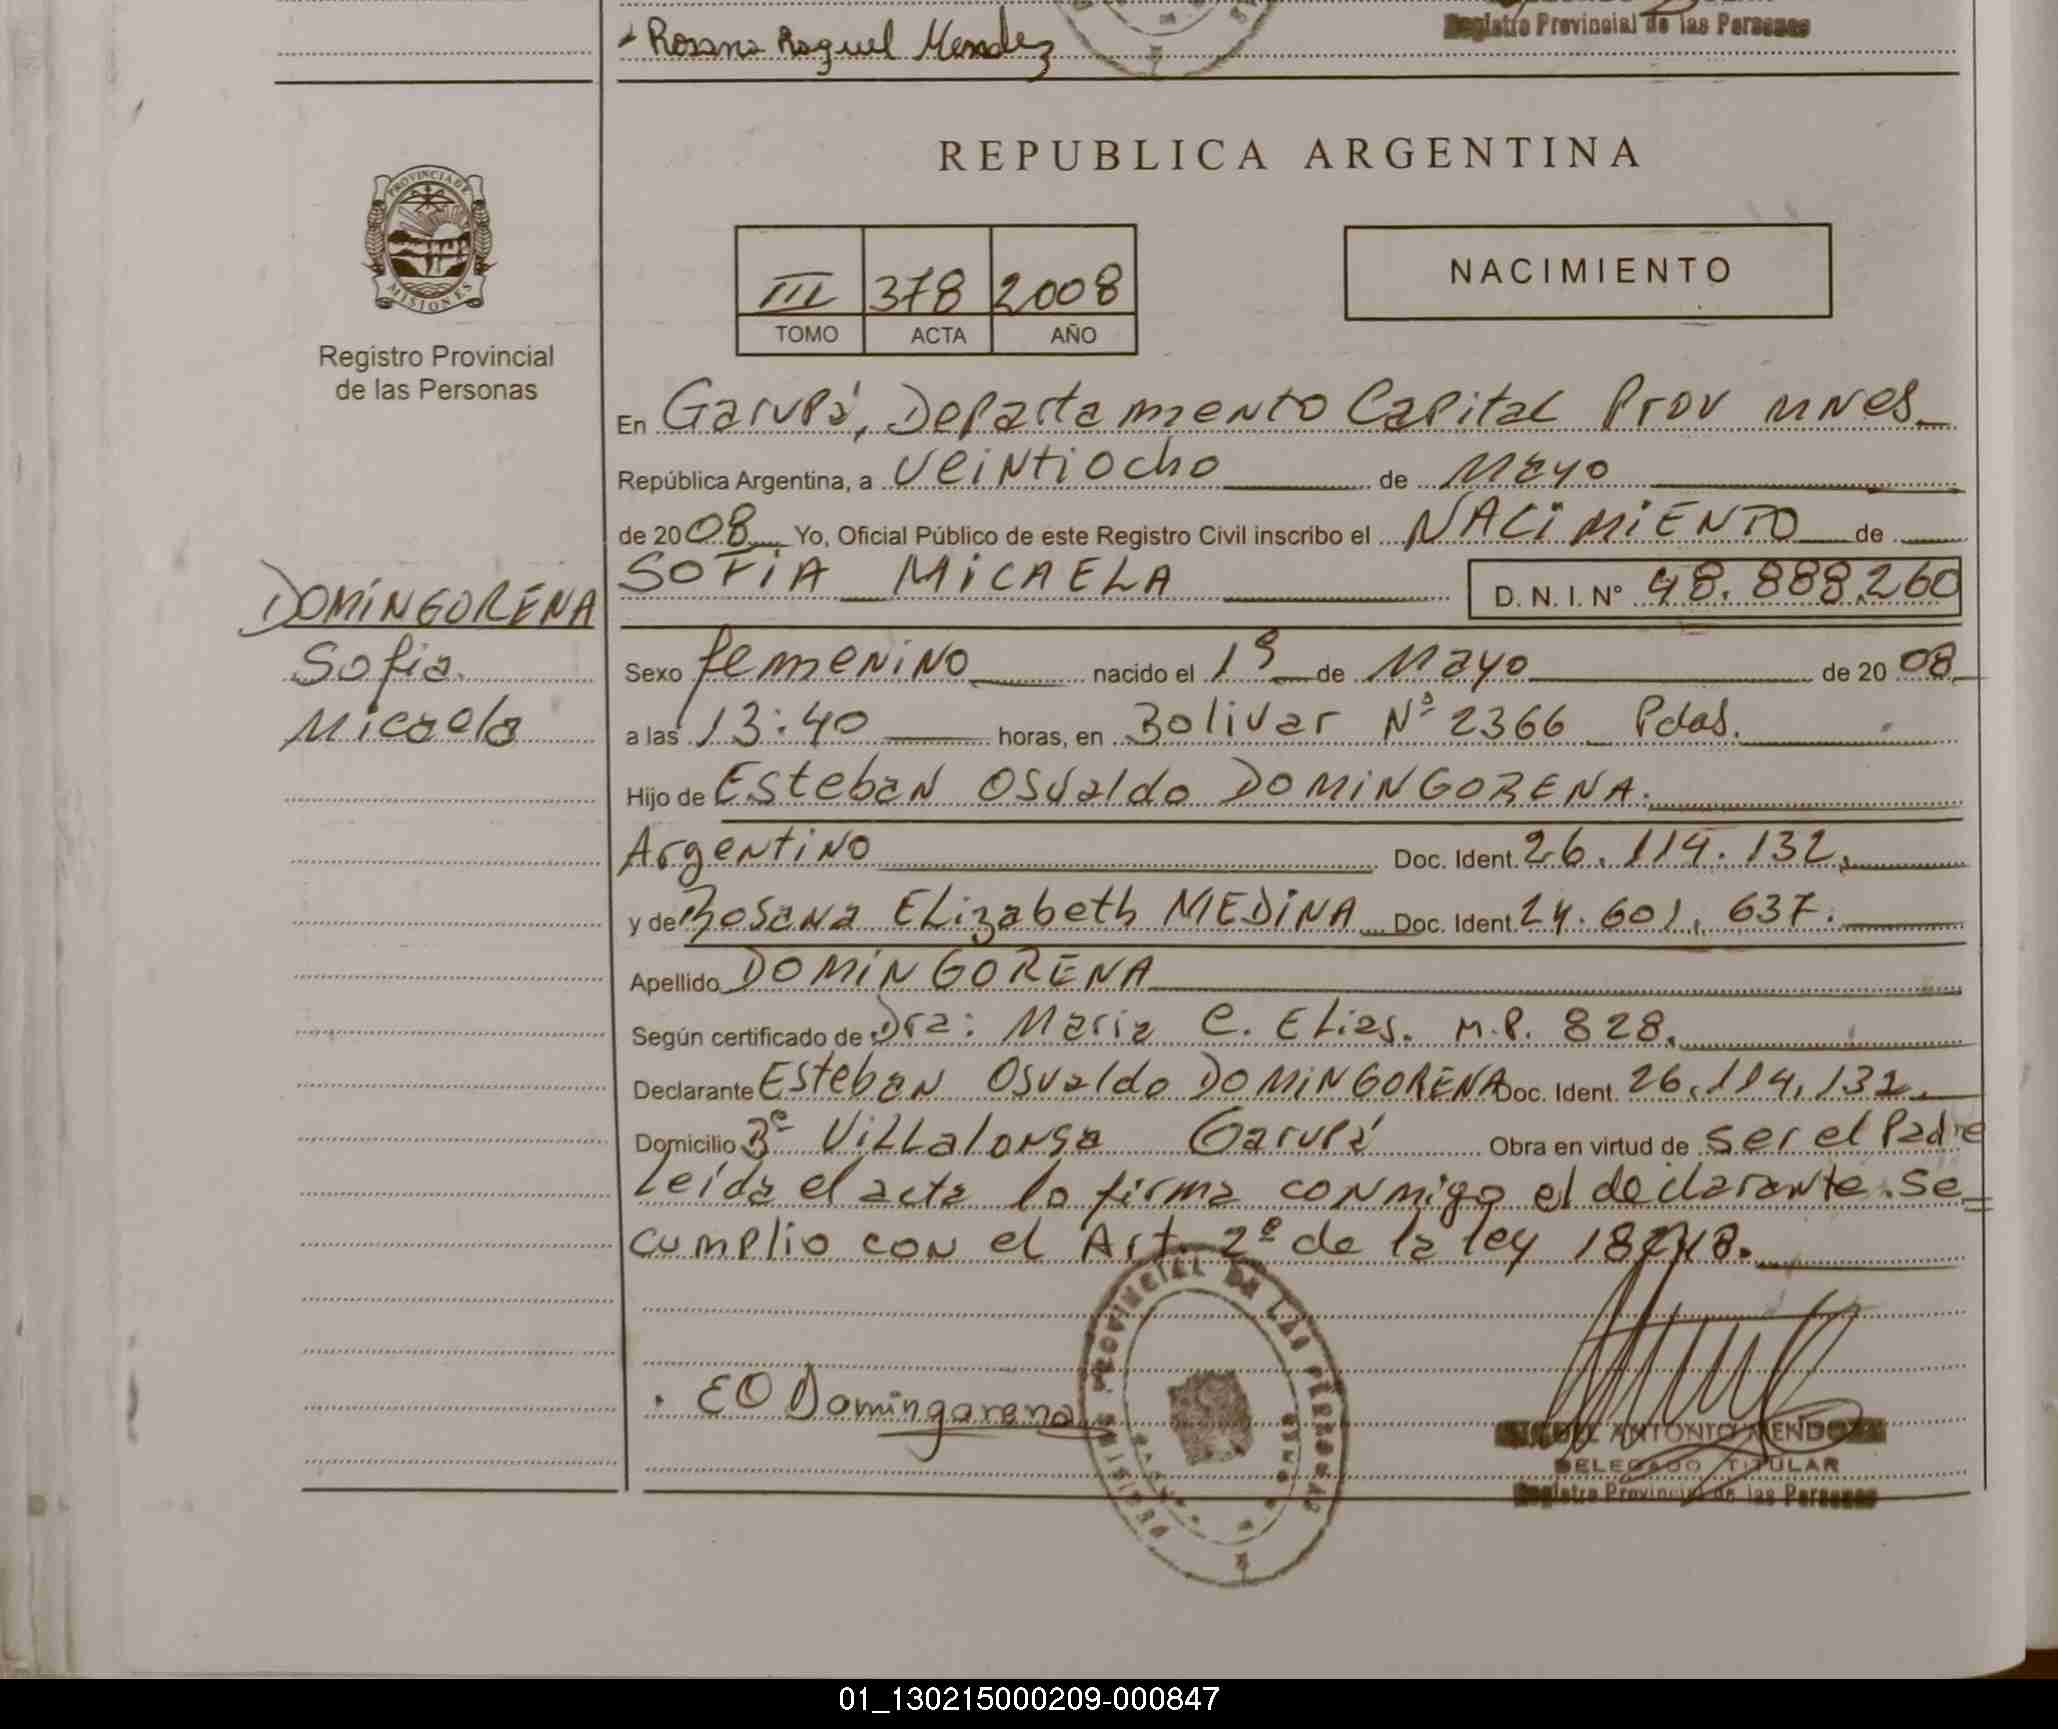 Rosana Raquel Mendez
Registro Provincial de las Personas
PROVINCIA DE
MISIONES
Registro Provincial
de las Personas
REPUBLICA ARGENTINA
III 378 2008
TOMO ACTA AÑO
NACIMIENTO
En Garupá, Departamento Capital Prov Mnes.
República Argentina, a veintiocho de Mayo
de 2008 Yo, Oficial Público de este Registro Civil inscribo el NACIMIENTO de
SOFIA MICAELA D. N. I. N° 48.888.260
DOMINGORENA
Sofia
Micaela
Sexo femenino nacido el 1º de Mayo de 2008
a las 13:40 horas, en Bolivar Nº 2366 Pdas.
Hijo de Esteban Osvaldo DOMINGORENA.
Argentino Doc. Ident. 26.114.132.
y de Rosana Elizabeth MEDINA Doc. Ident. 24.601.637.
Apellido DOMINGORENA
Según certificado de Dra: Maria C. Elias. M.P. 828.
Declarante Esteban Osvaldo DOMINGORENA Doc. Ident. 26.114.132.
Domicilio Bº Villalonga Garupá Obra en virtud de ser el Padre
Leida el acta lo firma conmigo el declarante. Se
cumplio con el Art. 2º de la ley 18248.
EO Domingorena
PROVINCIAL DE LAS PERSONAS
MISIONES
ANTONIO MENDOZA
DELEGADO TITULAR
Registro Provincial de las Personas
01_130215000209-000847